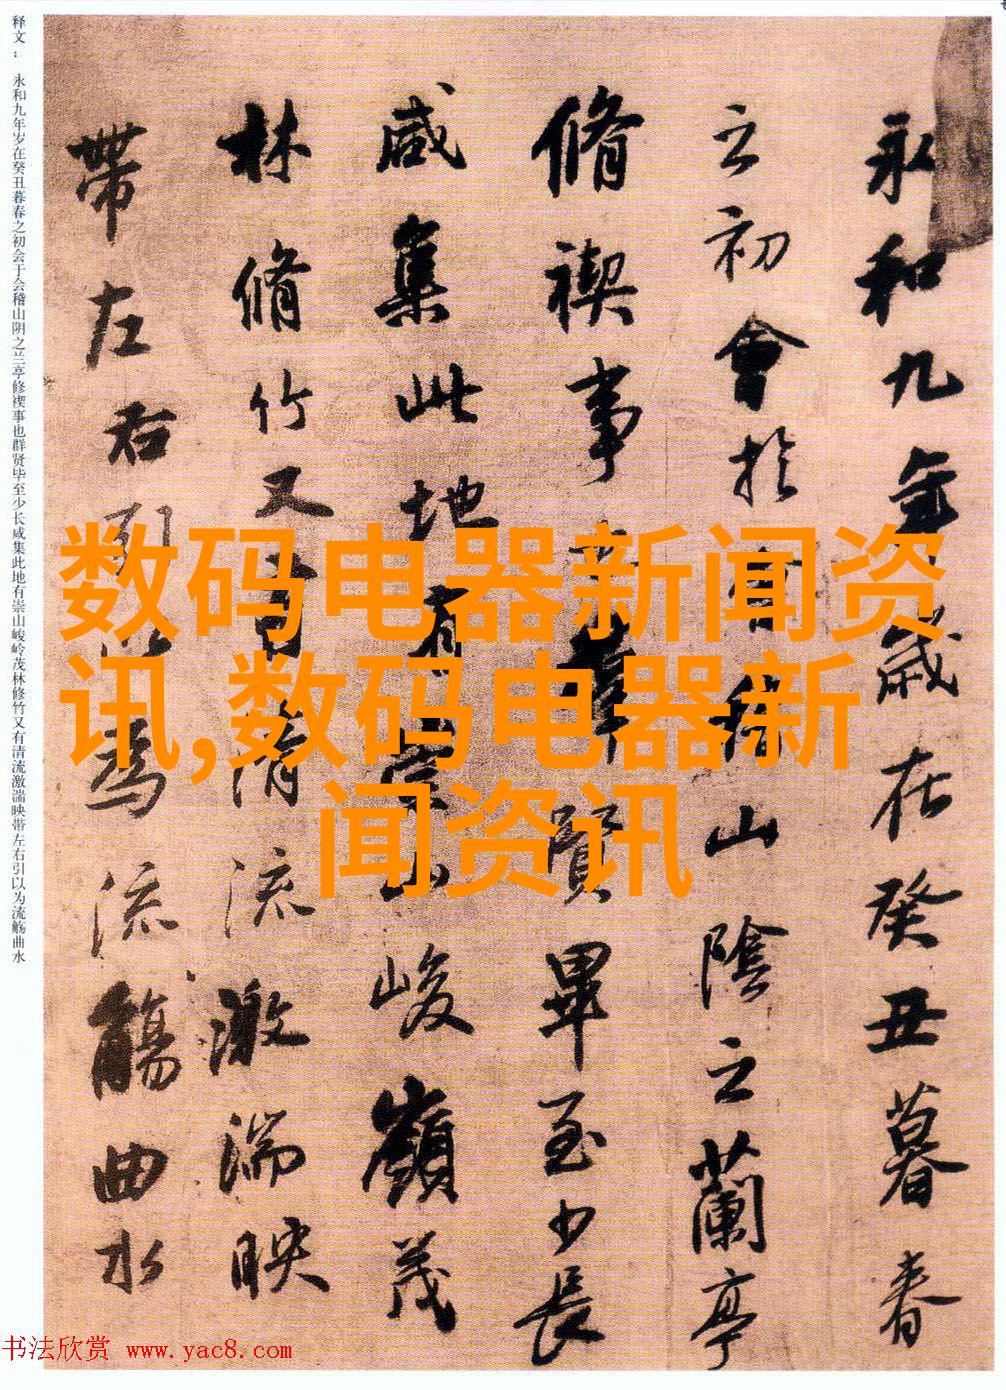 永和九年歲在癸丑暮春
之初會於會稽山陰之蘭亭
脩禊事也羣賢畢至少長
咸集此地有崇山峻嶺茂
林脩竹又有清流激湍映
帶左右引以為流觴曲水
释文：永和九年岁在癸丑暮春之初会于会稽山阴之兰亭修禊事也群贤毕至少长咸集此地有崇山峻岭茂林修竹又有清流激湍映带左右引以为流觞曲水
数码电器新闻资
讯,数码电器新
闻资讯
书法欣赏 www.yac8.com